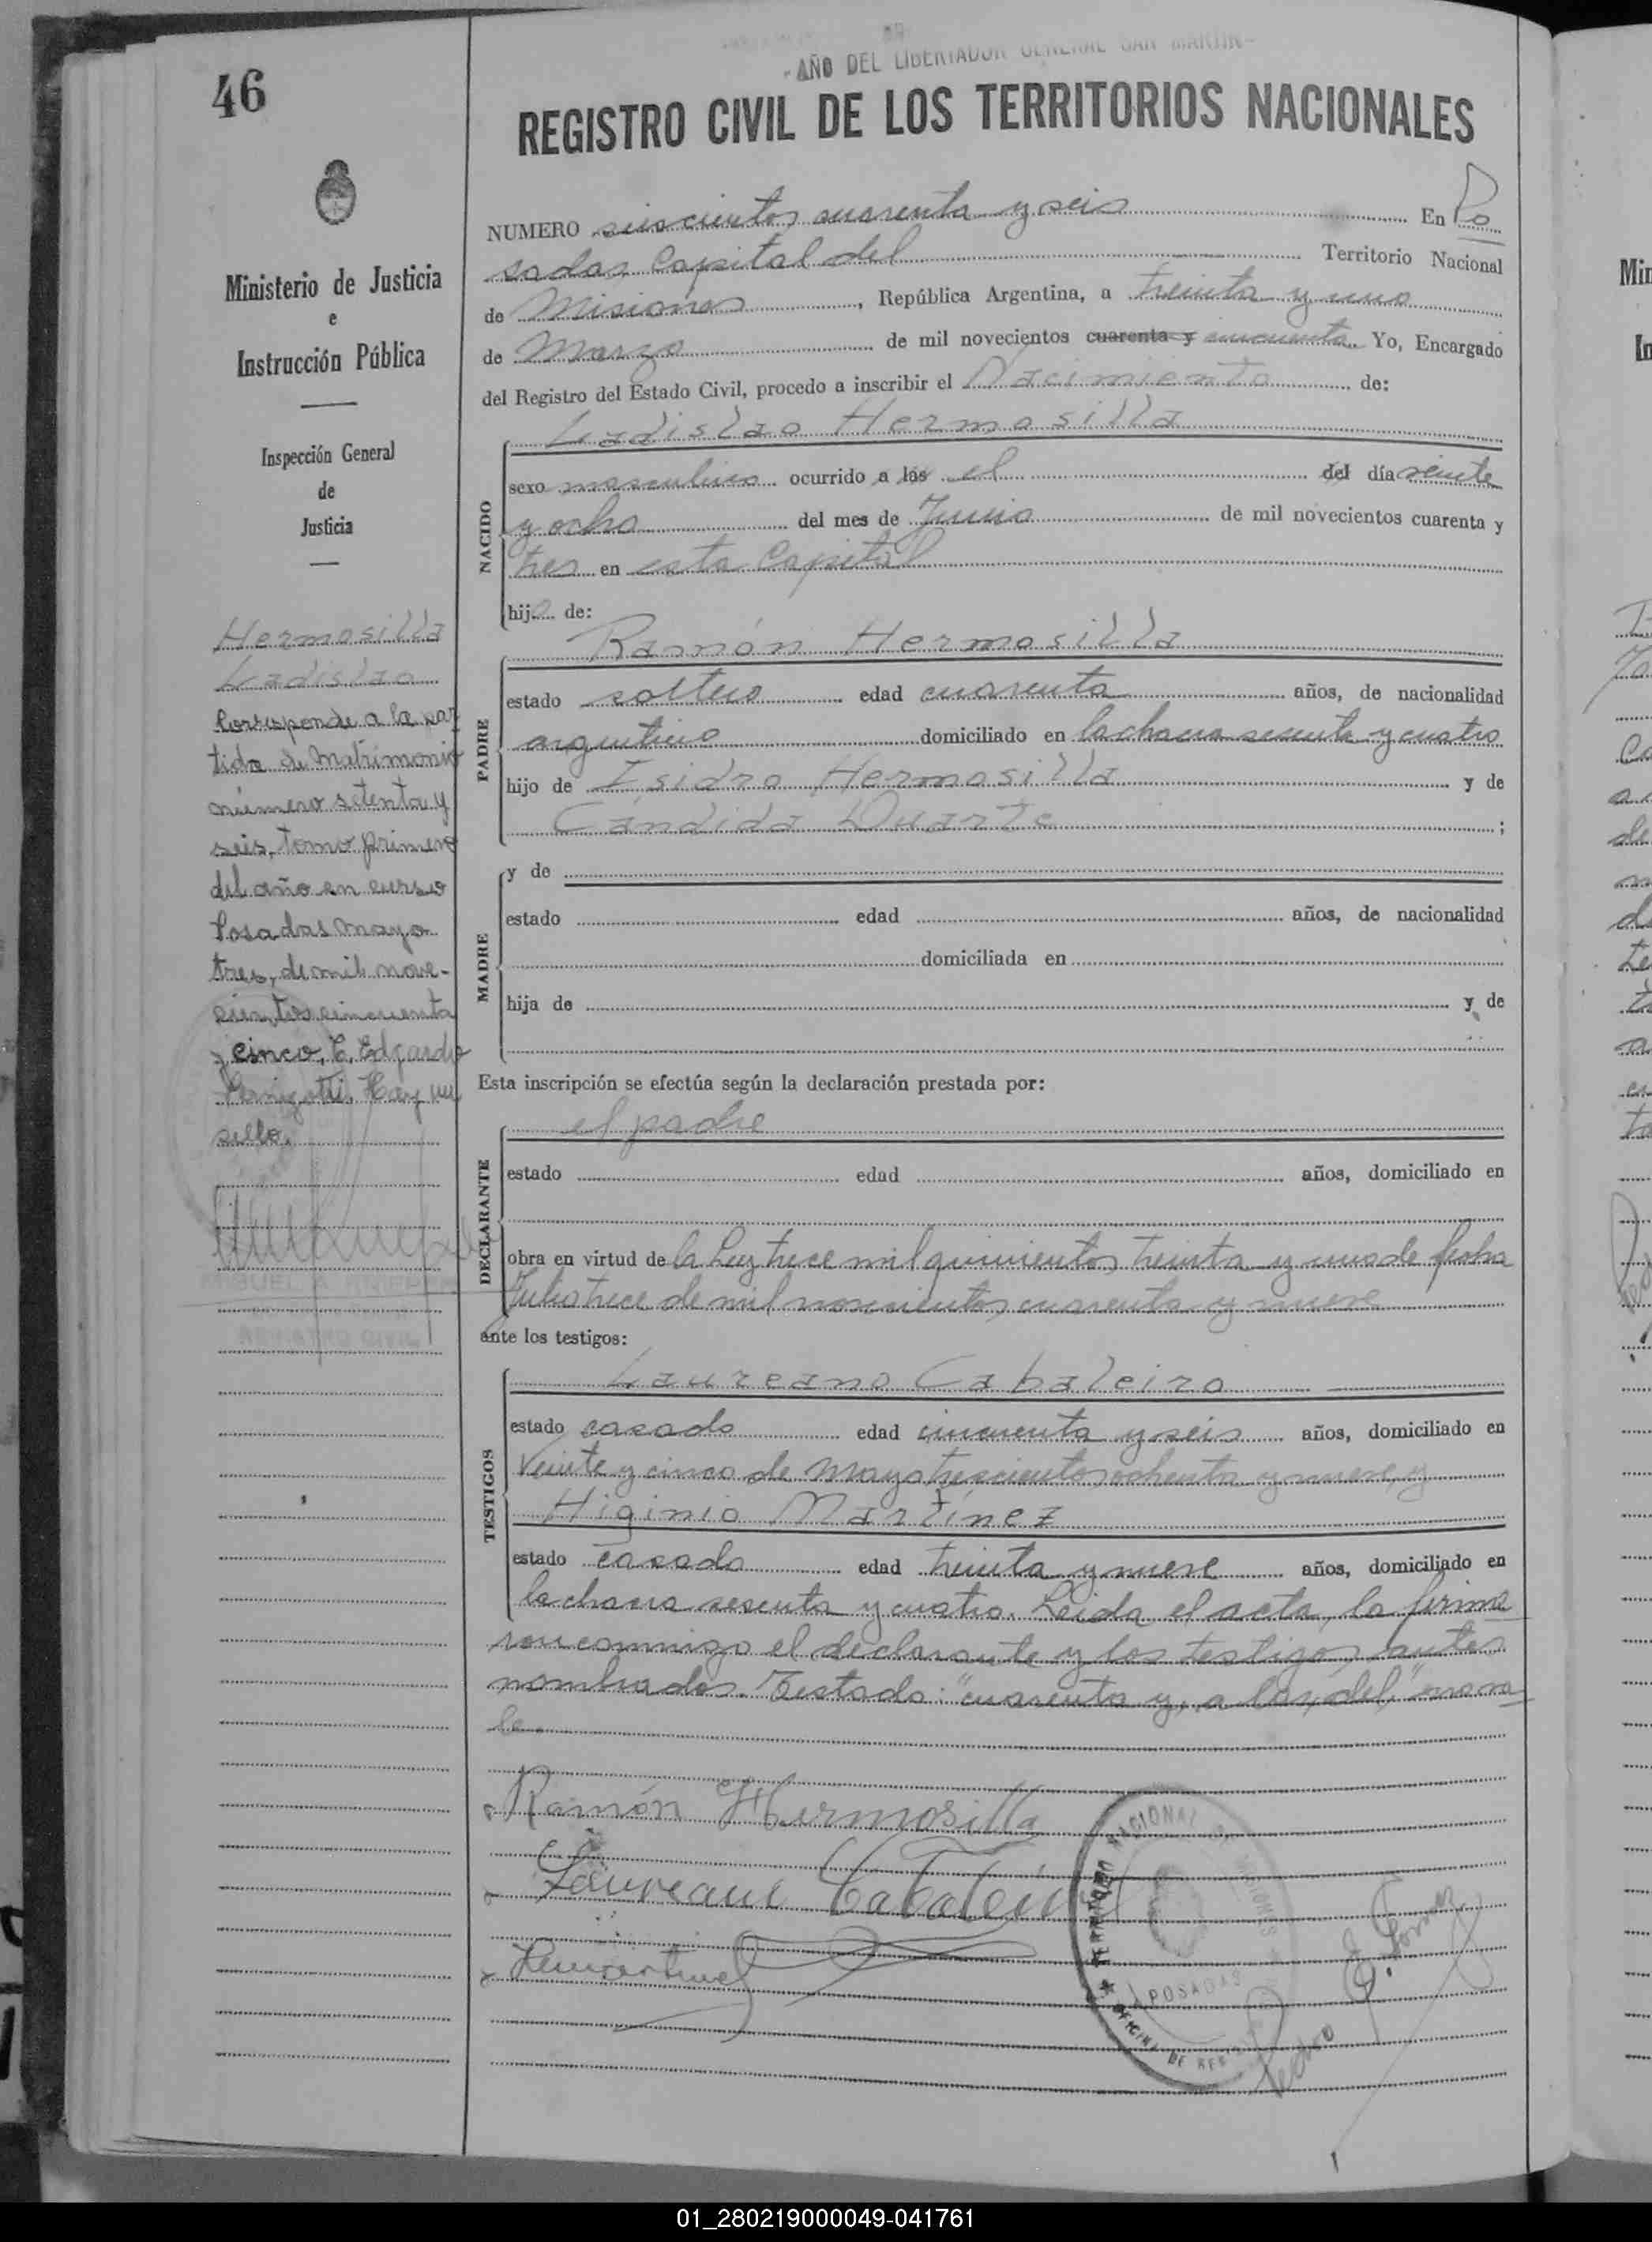 46
- AÑO DEL LIBERTADOR GENERAL SAN MARTIN -
REGISTRO CIVIL DE LOS TERRITORIOS NACIONALES
Ministerio de Justicia
e
Instrucción Pública
Inspección General
de
Justicia
Hermosilla
Ladislao
Corresponde a la par
tida de Matrimonio
número setenta y
seis, tomo primero
del año en curso
Posadas Mayo
tres, de mil nove-
cientos cincuenta
y cinco, E. Edgardo
Hay un
sello.
REGISTRO CIVIL
NUMERO seiscientos cuarenta y seis En Po
sadas Capital del Territorio Nacional
de Misiones, República Argentina, a treinta y uno
de Marzo de mil novecientos cuarenta y cincuenta. Yo, Encargado
del Registro del Estado Civil, procedo a inscribir el Nacimiento de:
Ladislao Hermosilla
NACIDO
sexo masculino ocurrido a las el del día veinte
y ocho del mes de Junio de mil novecientos cuarenta y
tres en esta Capital
hijo de:
Ramón Hermosilla
PADRE
estado soltero edad cuarenta años, de nacionalidad
argentino domiciliado en la chacra sesenta y cuatro
hijo de Isidro Hermosilla y de
Cándida Duarte ;
MADRE
y de
estado edad años, de nacionalidad
domiciliada en
hija de y de
Esta inscripción se efectúa según la declaración prestada por:
el padre
DECLARANTE
estado edad años, domiciliado en
obra en virtud de la Ley trece mil quinientos treinta y uno de fecha
Julio trece de mil novecientos cuarenta y nueve
ante los testigos:
Laureano Cabaleiro
TESTIGOS
estado casado edad cincuenta y seis años, domiciliado en
Veinte y cinco de Mayo trescientos ochenta y nueve, y
Higinio Martínez
estado casado edad treinta y nueve años, domiciliado en
la chacra sesenta y cuatro. Leida el acta, la firma
ron conmigo el declarante y los testigos antes
nombrados. Testado: "cuarenta y, a las, del," no va
le.
Ramón Hermosilla
Laureano Cabaleiro
NACIONAL DE MISIONES
POSADAS
OFICINA DE
Pedro
01_280219000049-041761